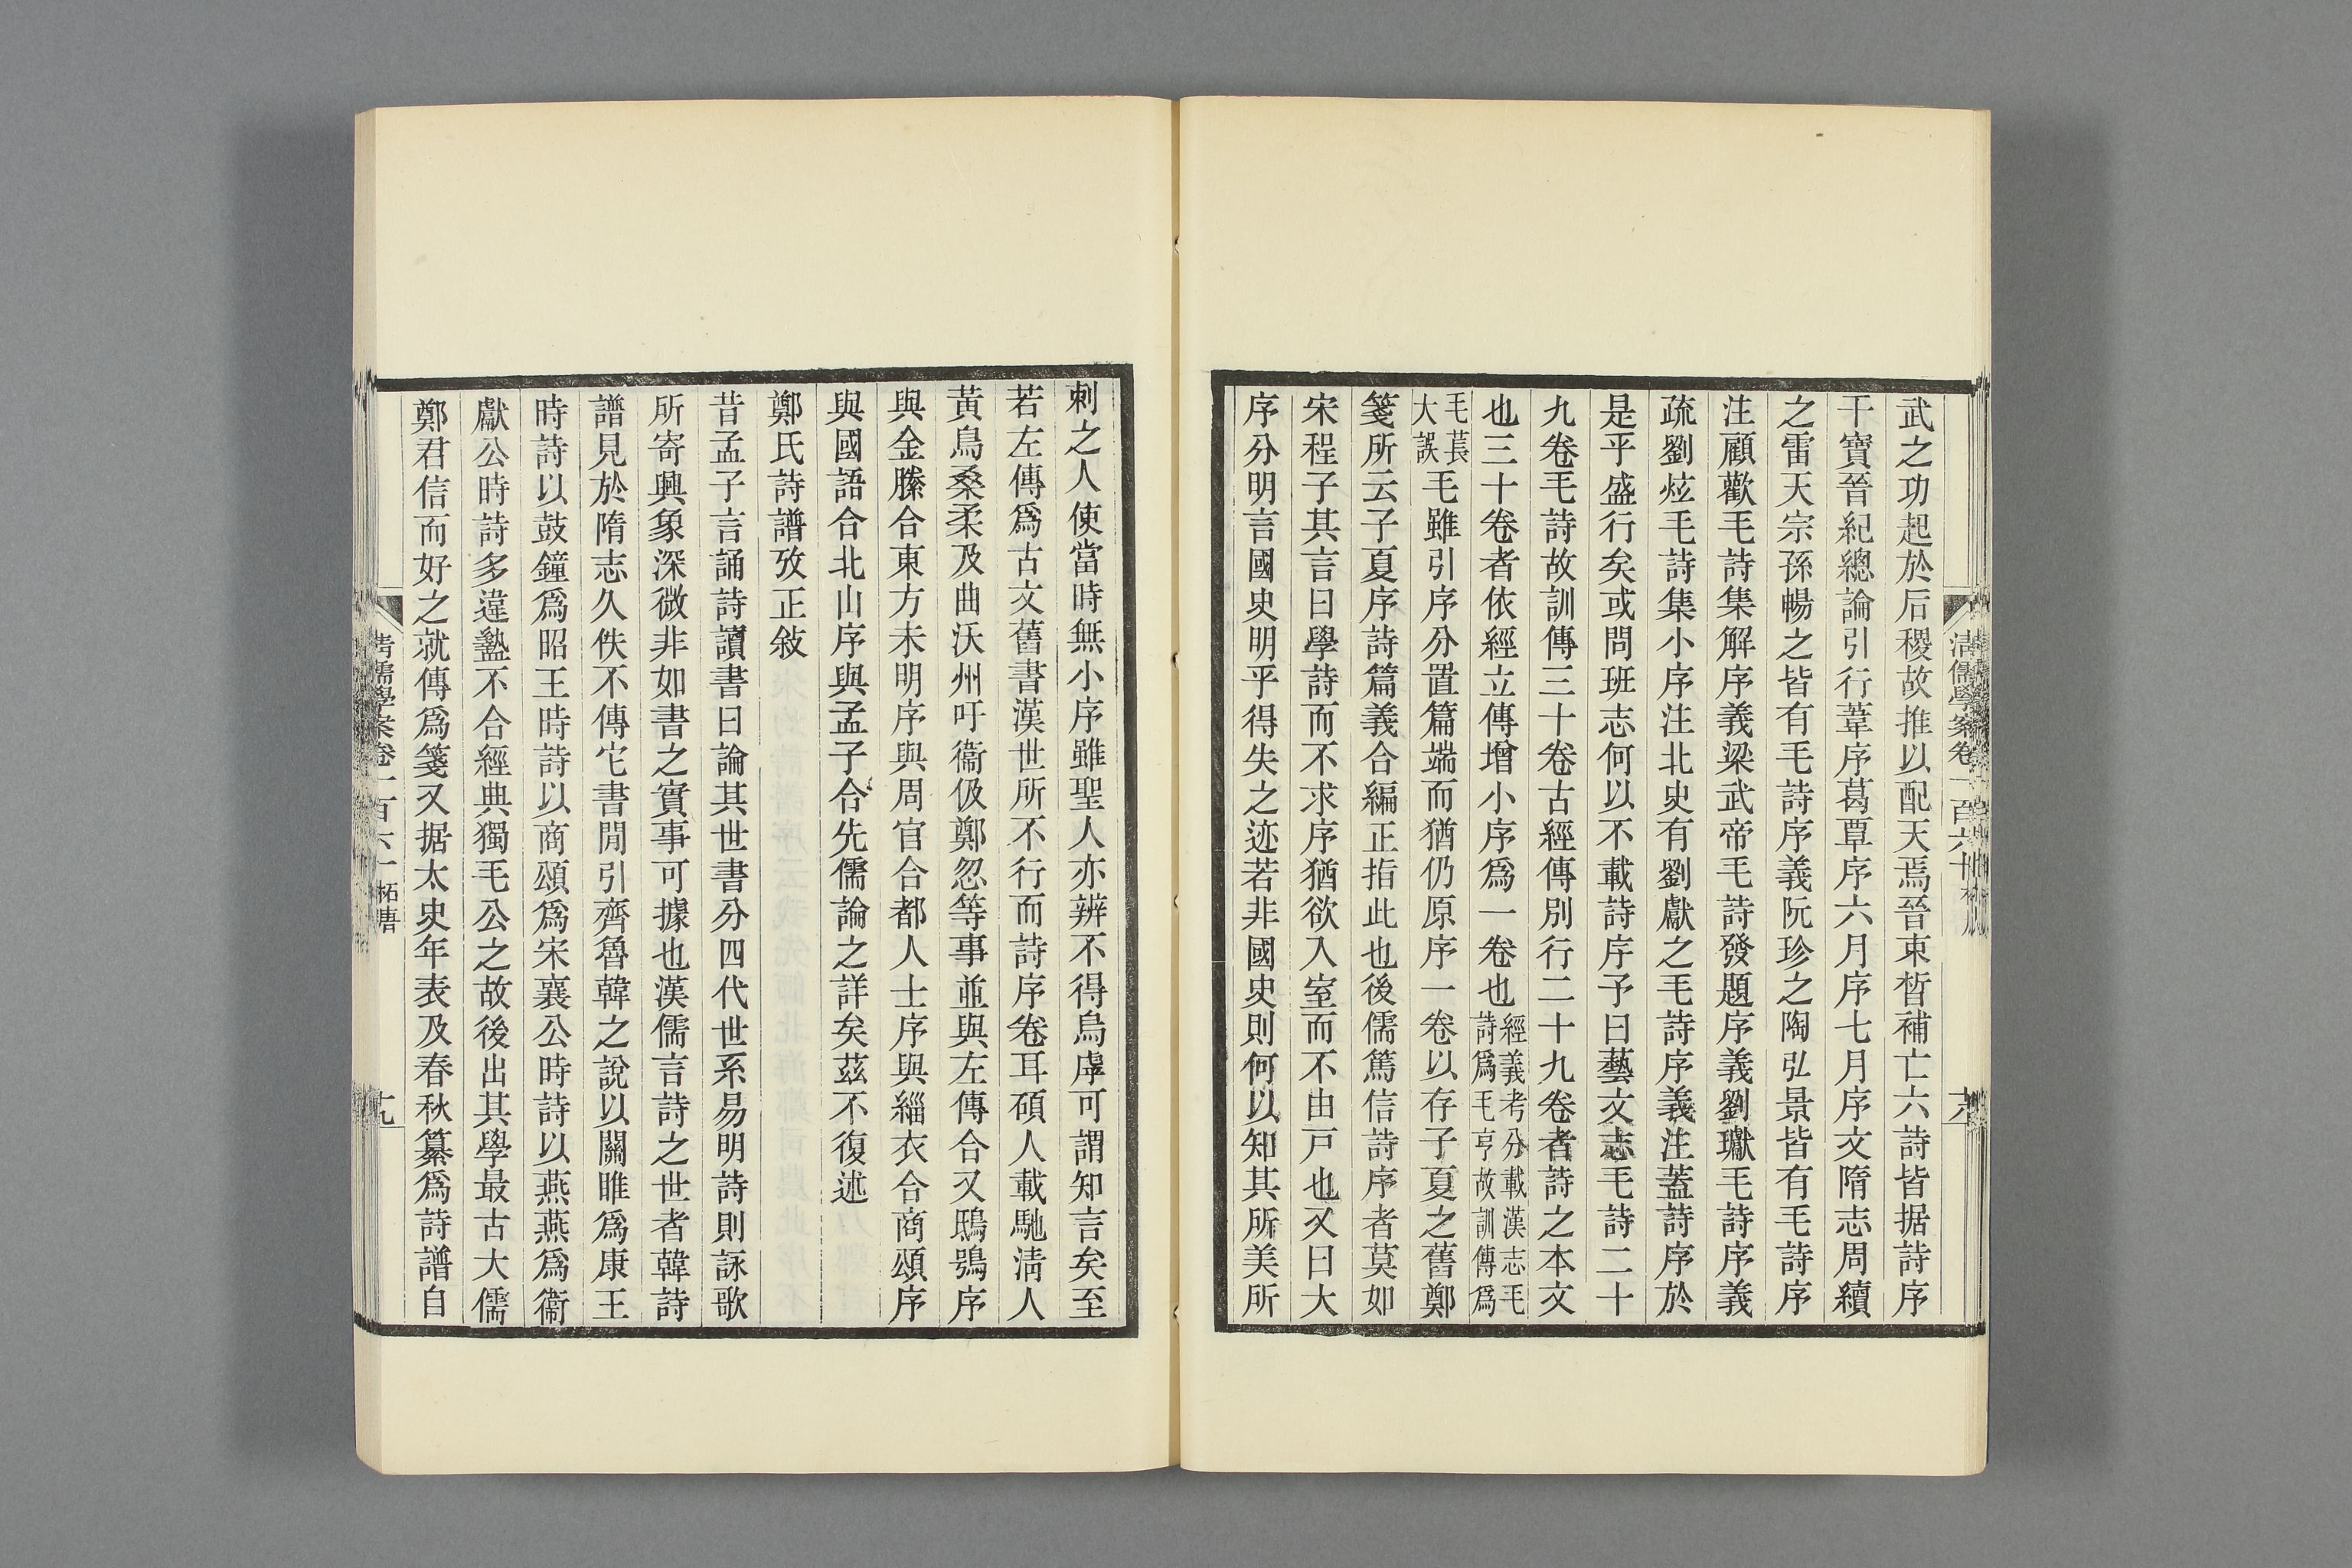 武之功起於后稷故推以配天焉晉束晳補亡六詩皆据詩序
干寶晉紀總論引行葦序葛覃序六月序七月序文隋志周續
之雷天宗孫暢之皆有毛詩序義阮珍之陶弘景皆有毛詩序
注顧歡毛詩集解序義梁武帝毛詩發題序義劉瓛毛詩序義
疏劉炫毛詩集小序注北史有劉獻之毛詩序義注蓋詩序於
是乎盛行矣或問班志何以不載詩序予曰藝文志毛詩二十
九卷毛詩故訓傳三十卷古經傳別行二十九卷者詩之本文
也三十卷者依經立傳增小序爲一卷也經義考分載漢志毛詩爲毛亨故訓傳爲
毛萇大誤毛雖引序分置篇端而猶仍原序一卷以存子夏之舊鄭
箋所云子夏序詩篇義合編正指此也後儒篤信詩序者莫如
宋程子其言曰學詩而不求序猶欲入室而不由戸也又曰大
序分明言國史明乎得失之迹若非國史則何以知其所美所
刺之人使當時無小序雖聖人亦辨不得烏虖可謂知言矣至
若左傳爲古文舊書漢世所不行而詩序卷耳碩人載馳淸人
黃鳥桑柔及曲沃州吁衞伋鄭忽等事並與左傳合又鴟鴞序
與金縢合東方未明序與周官合都人士序與緇衣合商頌序
與國語合北山序與孟子合先儒論之詳矣茲不復述
鄭氏詩譜攷正敍
昔孟子言誦詩讀書曰論其世書分四代世系易明詩則詠歌
所寄興象深微非如書之實事可據也漢儒言詩之世者韓詩
譜見於隋志久佚不傳它書閒引齊魯韓之說以關雎爲康王
時詩以鼓鐘爲昭王時詩以商頌爲宋襄公時詩以燕燕爲衞
獻公時詩多違盭不合經典獨毛公之故後出其學最古大儒
鄭君信而好之就傳爲箋又据太史年表及春秋纂爲詩譜自